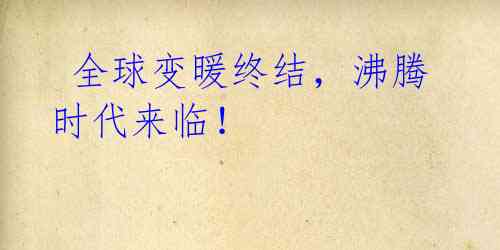 全球变暖终结，沸腾
时代来临！